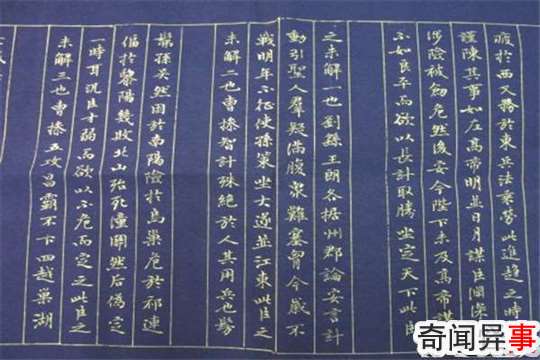 疲於西又務於東兵法乘勞此進趨之時
謹陳其事如左高帝明並日月謀臣淵深
涉險被創危然後安今陛下未及高帝謀
不如良平而欲以長計取勝坐定天下此臣
之未解一也劉孫王朗各據州郡論安言計
動引聖人羣疑滿腹衆難塞胷今歲不
戰明年不征使孫策坐大遂並江東此臣之
未解二也曹操智計殊絕於人其用兵也髣
髴孫吳然困於南陽險於烏巢危於祁連
偪於黎陽幾敗北山殆死潼關然后偽定
一時耳況臣才弱而欲以不危而定之此臣之
未解三也曹操五攻昌霸不下四越巢湖
奇闻异事